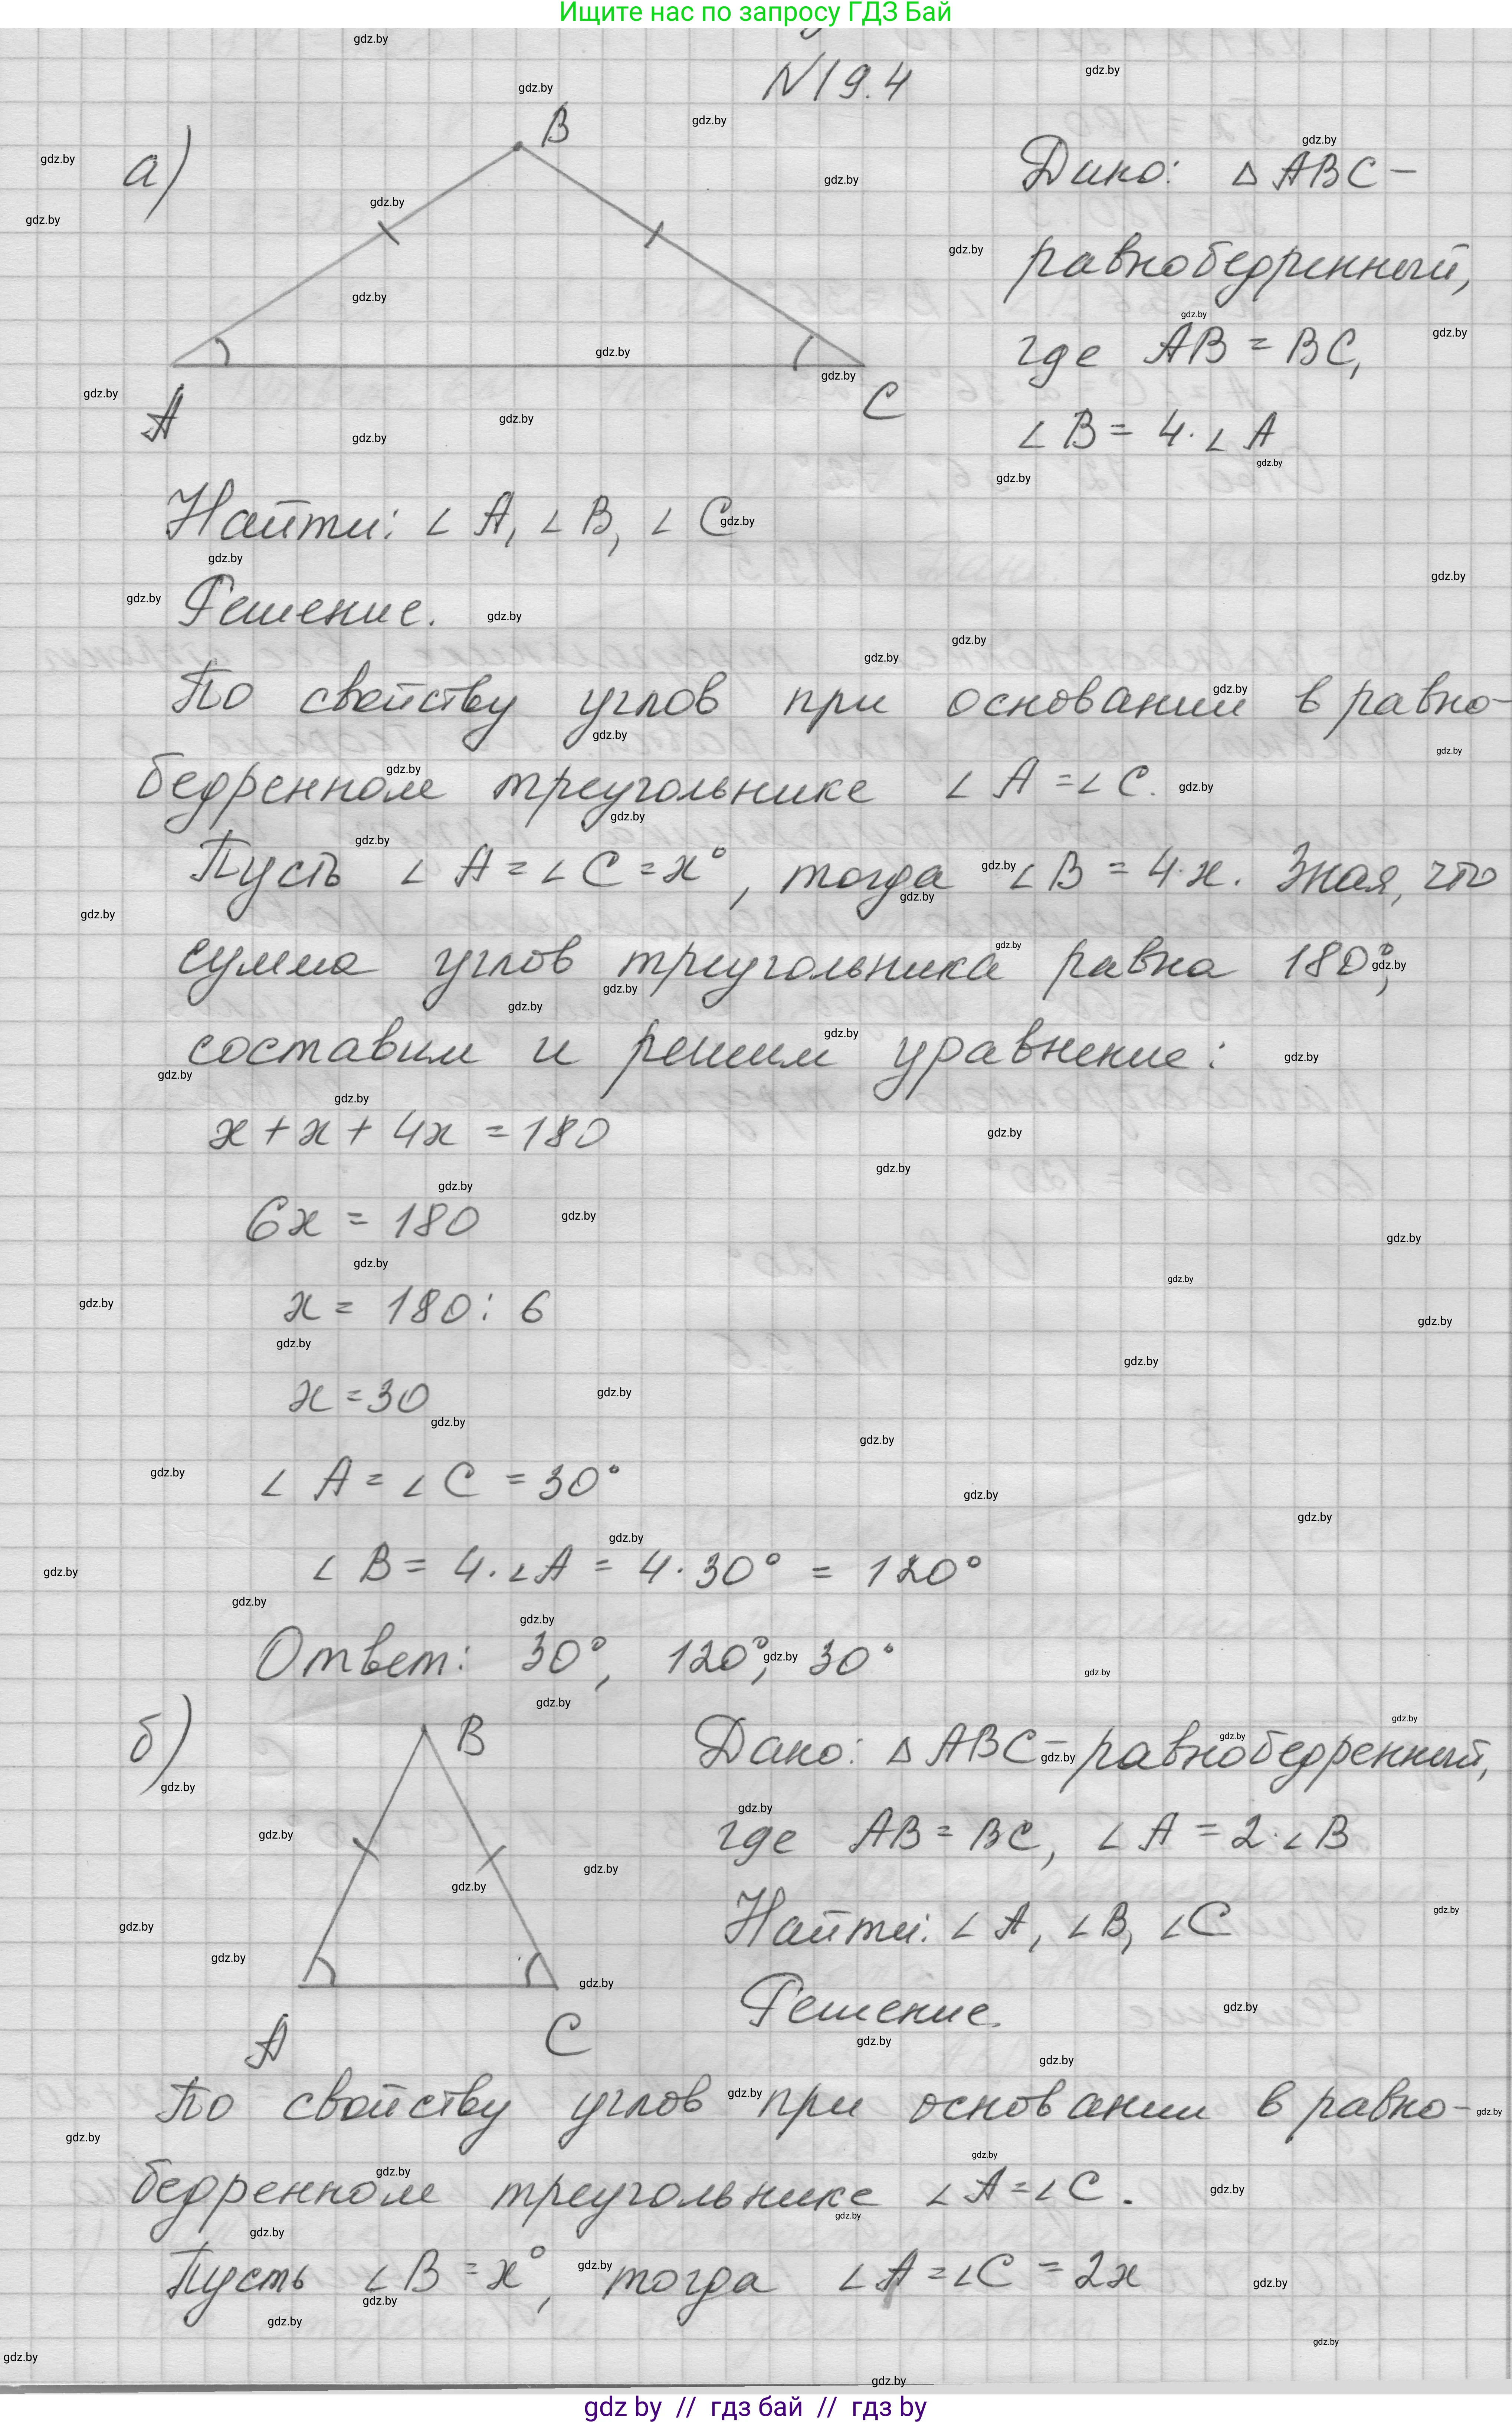 Ищите нас по запросу ГДЗ Бай
N19.4
а)
B
A
C
Дано: △ ABC –
равнобедренный,
где AB = BC,
∠ B = 4·∠ A
Найти: ∠ A, ∠ B, ∠ C
Решение.
По свойству углов при основании в равно-
бедренном треугольнике ∠ A = ∠ C.
Пусть ∠ A = ∠ C = x°, тогда ∠ B = 4·x. Зная, что
сумма углов треугольника равна 180°,
составим и решим уравнение:
x + x + 4x = 180
6x = 180
x = 180 : 6
x = 30
∠ A = ∠ C = 30°
∠ B = 4·∠A = 4·30° = 120°
Ответ: 30°, 120°, 30°
б)
B
A
C
Дано: △ ABC – равнобедренный,
где AB = BC, ∠ A = 2·∠ B
Найти: ∠ A, ∠ B, ∠ C
Решение.
По свойству углов при основании в равно-
бедренном треугольнике ∠ A = ∠ C.
Пусть ∠ B = x°, тогда ∠ A = ∠ C = 2x
gdz by // гдз бай // гдз by